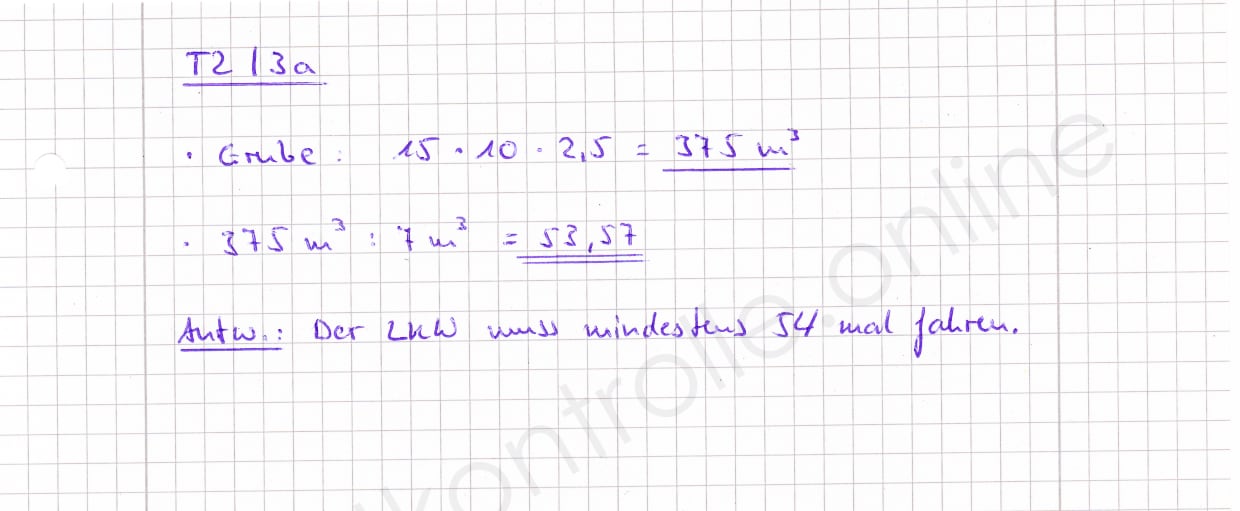 T2 / 3a
· Grube : 15 · 10 · 2,5 = 375 m³
· 375 m³ : 7 m³ = 53,57
Antw.: Der LKW muss mindestens 54 mal fahren.
kontrolle.online